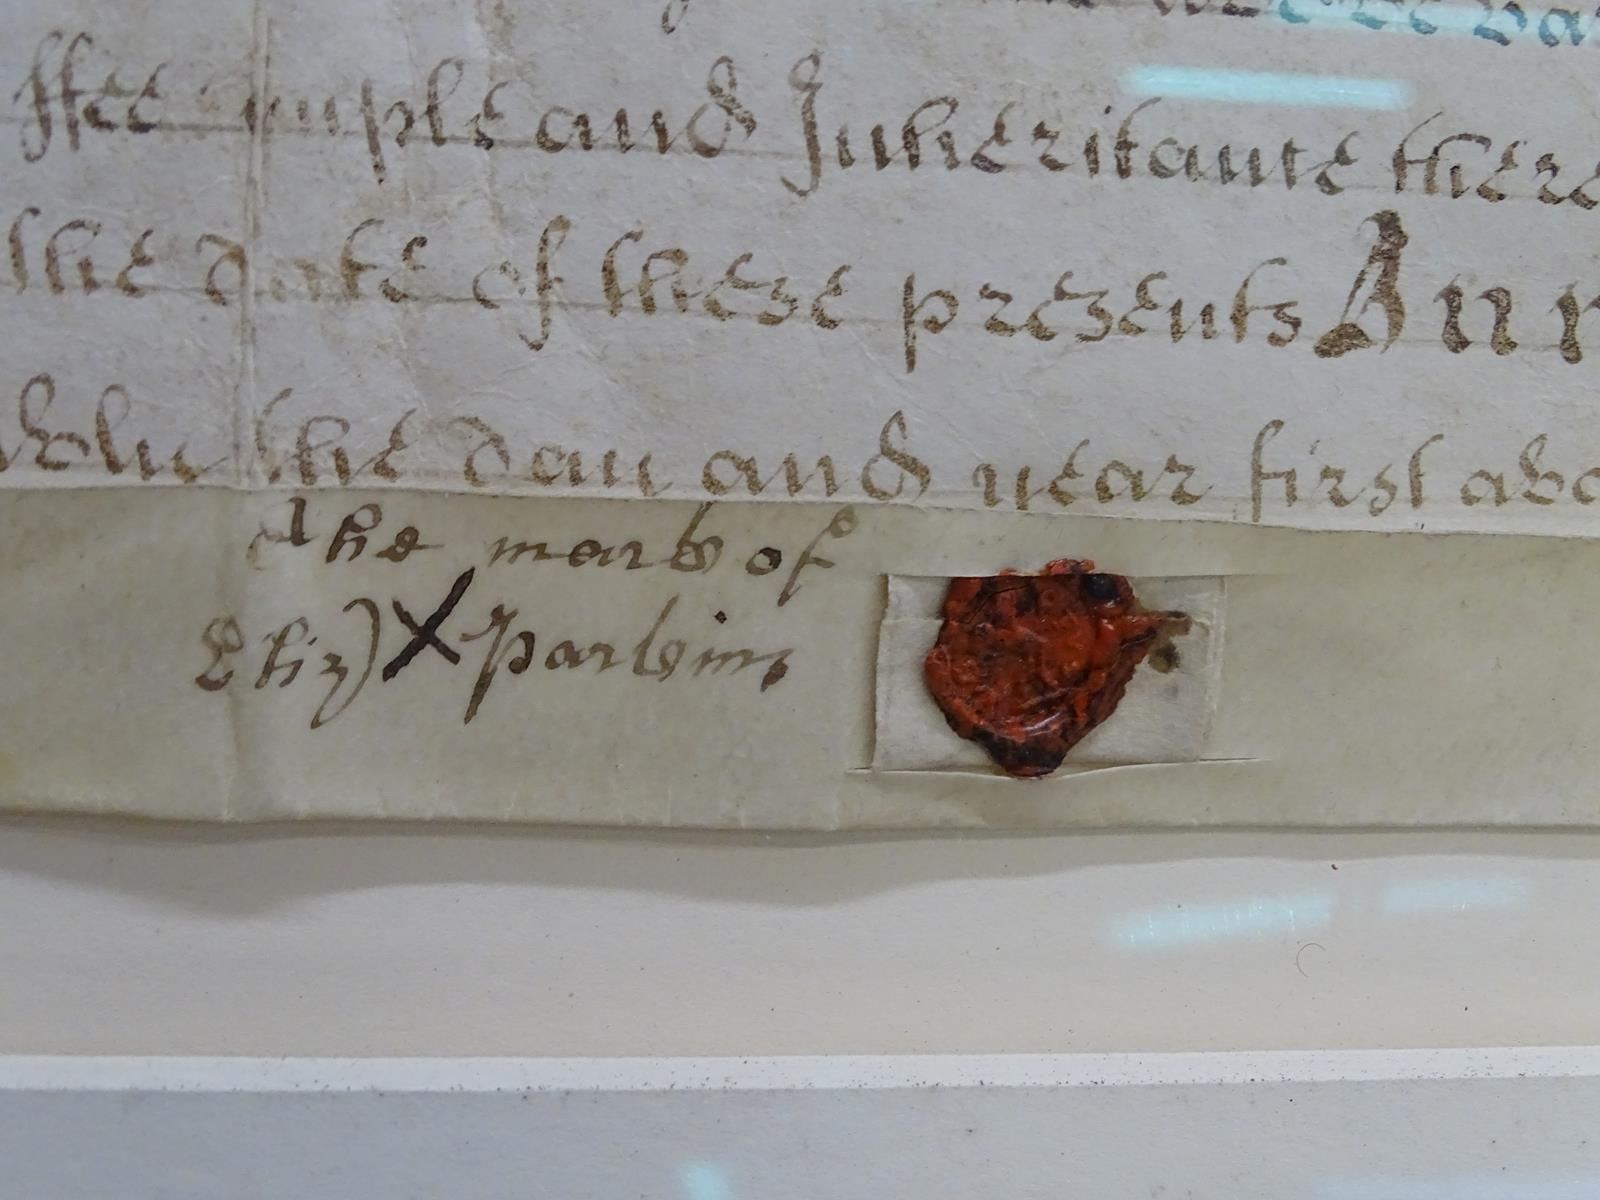 ffee simple and Inheritance there
the date of these presents Ann
the day and year first abo
the mark of
Eliz) X Parkins